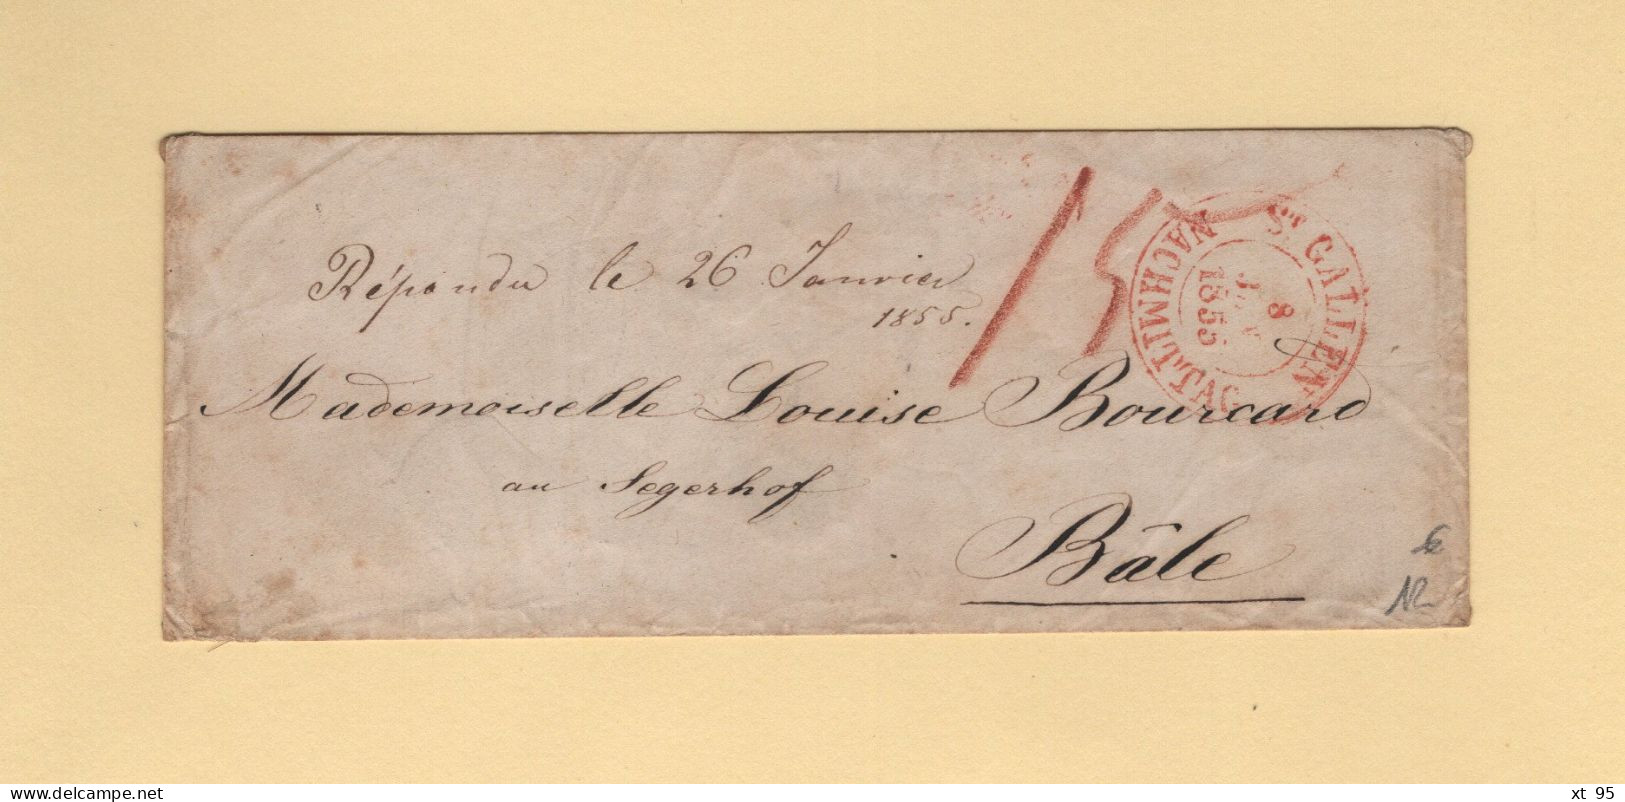 Répondu le 26 Janvier
1855.
15
St GALLEN
8
1855
NACHMITTAG
Mademoiselle Louise Bourcard
au Segerhof
Bâle
delcampe.net
xt 95